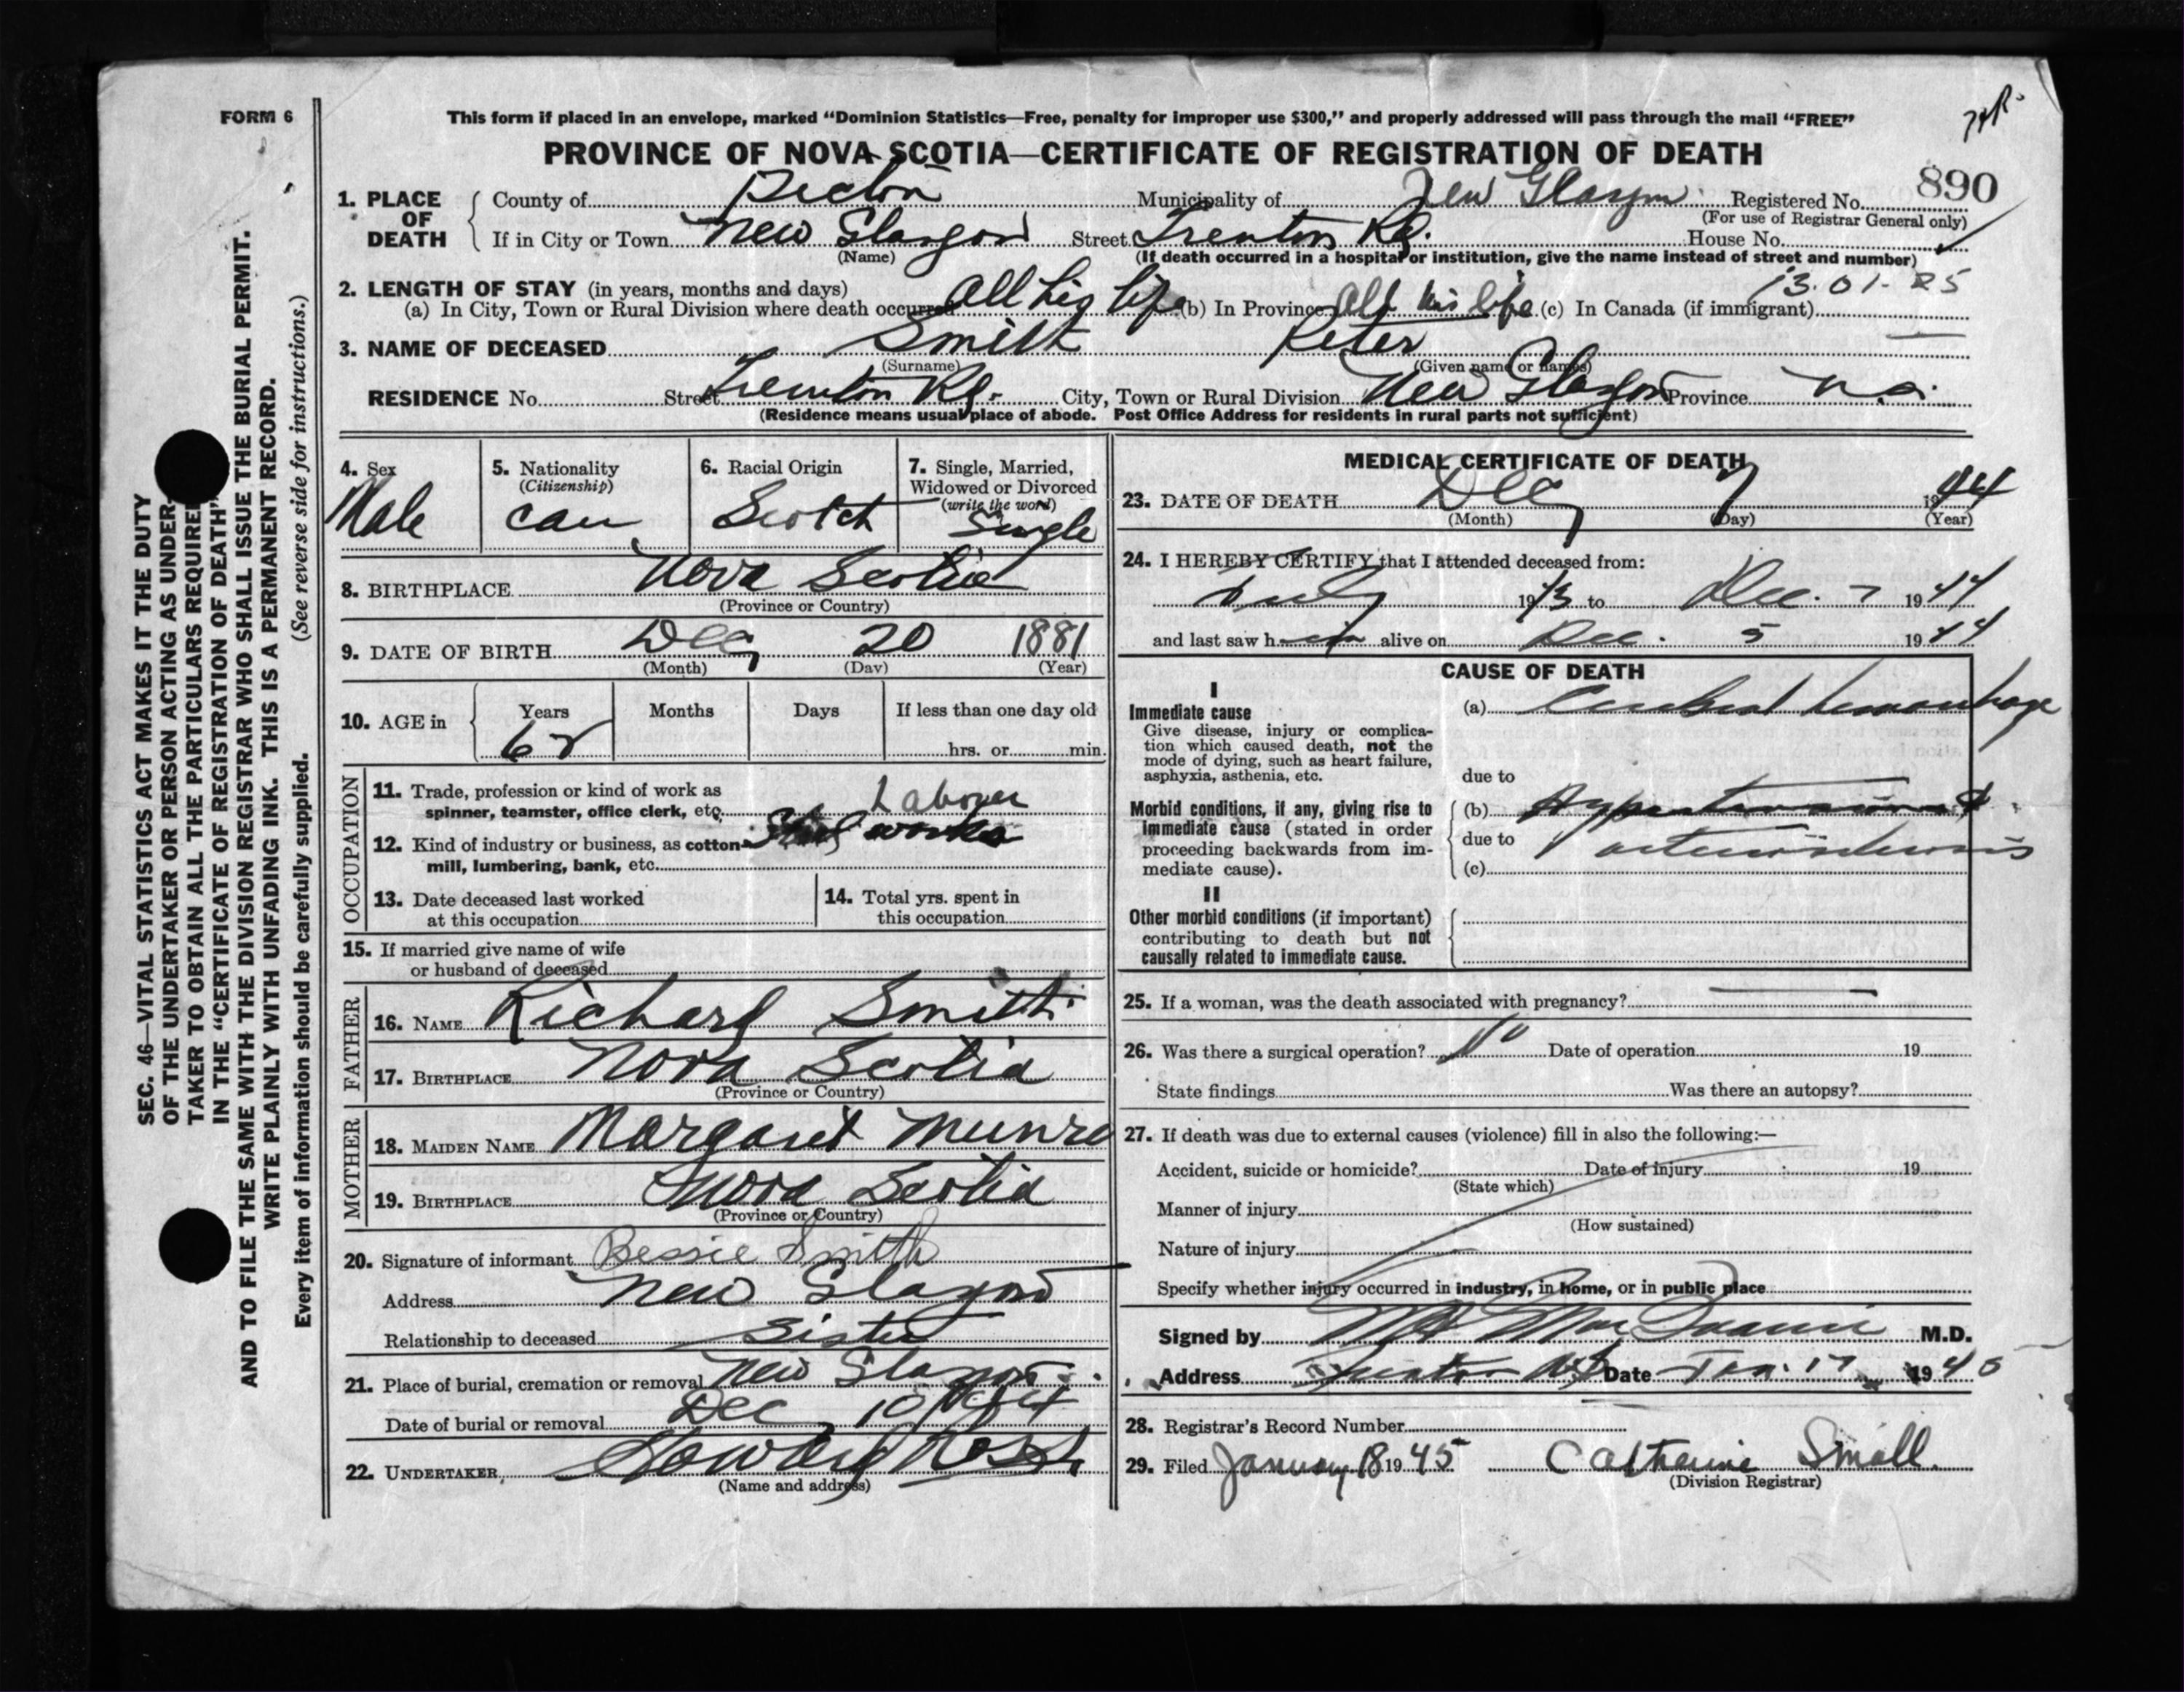 FORM 6
This form if placed in an envelope, marked "Dominion Statistics—Free, penalty for improper use $300," and properly addressed will pass through the mail "FREE"
PROVINCE OF NOVA SCOTIA—CERTIFICATE OF REGISTRATION OF DEATH
890
1. PLACE OF DEATH
County of Pictou Municipality of New Glasgow Registered No.
(For use of Registrar General only)
If in City or Town New Glasgow Street Trenton Rd. House No.
(Name) (If death occurred in a hospital or institution, give the name instead of street and number)
13.01.85
2. LENGTH OF STAY (in years, months and days)
(a) In City, Town or Rural Division where death occurred All his life (b) In Province All his life (c) In Canada (if immigrant)
3. NAME OF DECEASED Smith Peter
(Surname) (Given name or names)
RESIDENCE No. Street Trenton Rd. City, Town or Rural Division New Glasgow Province N.S.
(Residence means usual place of abode. Post Office Address for residents in rural parts not sufficient)
4. Sex Male
5. Nationality (Citizenship) Can
6. Racial Origin Scotch
7. Single, Married, Widowed or Divorced (write the word) Single
8. BIRTHPLACE Nova Scotia
(Province or Country)
9. DATE OF BIRTH Dec 20 1881
(Month) (Day) (Year)
10. AGE in Years Months Days If less than one day old
62 hrs. or min.
OCCUPATION
11. Trade, profession or kind of work as
spinner, teamster, office clerk, etc. Laborer
12. Kind of industry or business, as cotton Steel works
mill, lumbering, bank, etc.
13. Date deceased last worked
at this occupation
14. Total yrs. spent in
this occupation
15. If married give name of wife
or husband of deceased
FATHER
16. NAME Richard Smith
17. BIRTHPLACE Nova Scotia
(Province or Country)
MOTHER
18. MAIDEN NAME Margaret Munro
19. BIRTHPLACE Nova Scotia
(Province or Country)
20. Signature of informant Bessie Smith
Address New Glasgow
Relationship to deceased Sister
21. Place of burial, cremation or removal New Glasgow
Date of burial or removal Dec 10 1944
22. UNDERTAKER Howard Ross
(Name and address)
MEDICAL CERTIFICATE OF DEATH
23. DATE OF DEATH Dec 7 1944
(Month) (Day) (Year)
24. I HEREBY CERTIFY that I attended deceased from:
July 1943 to Dec. 7 1944
and last saw him alive on Dec. 5 1944
CAUSE OF DEATH
I
Immediate cause
Give disease, injury or complication which caused death, not the mode of dying, such as heart failure, asphyxia, asthenia, etc.
(a) Cerebral hemorrhage
due to
Morbid conditions, if any, giving rise to immediate cause (stated in order proceeding backwards from immediate cause).
(b) Hypertension &
due to arteriosclerosis
(c)
II
Other morbid conditions (if important) contributing to death but not causally related to immediate cause.
25. If a woman, was the death associated with pregnancy?
26. Was there a surgical operation? No Date of operation 19
State findings Was there an autopsy?
27. If death was due to external causes (violence) fill in also the following:—
Accident, suicide or homicide? Date of injury 19
(State which)
Manner of injury
(How sustained)
Nature of injury
Specify whether injury occurred in industry, in home, or in public place
Signed by M.D.
Address Trenton N.S. Date Jan. 17 1945
28. Registrar's Record Number
29. Filed January 18 1945 Catherine Small
(Division Registrar)
SEC. 46—VITAL STATISTICS ACT MAKES IT THE DUTY
OF THE UNDERTAKER OR PERSON ACTING AS UNDER-
TAKER TO OBTAIN ALL THE PARTICULARS REQUIRED
IN THE "CERTIFICATE OF REGISTRATION OF DEATH"
AND TO FILE THE SAME WITH THE DIVISION REGISTRAR WHO SHALL ISSUE THE BURIAL PERMIT.
WRITE PLAINLY WITH UNFADING INK. THIS IS A PERMANENT RECORD.
Every item of information should be carefully supplied. (See reverse side for instructions.)